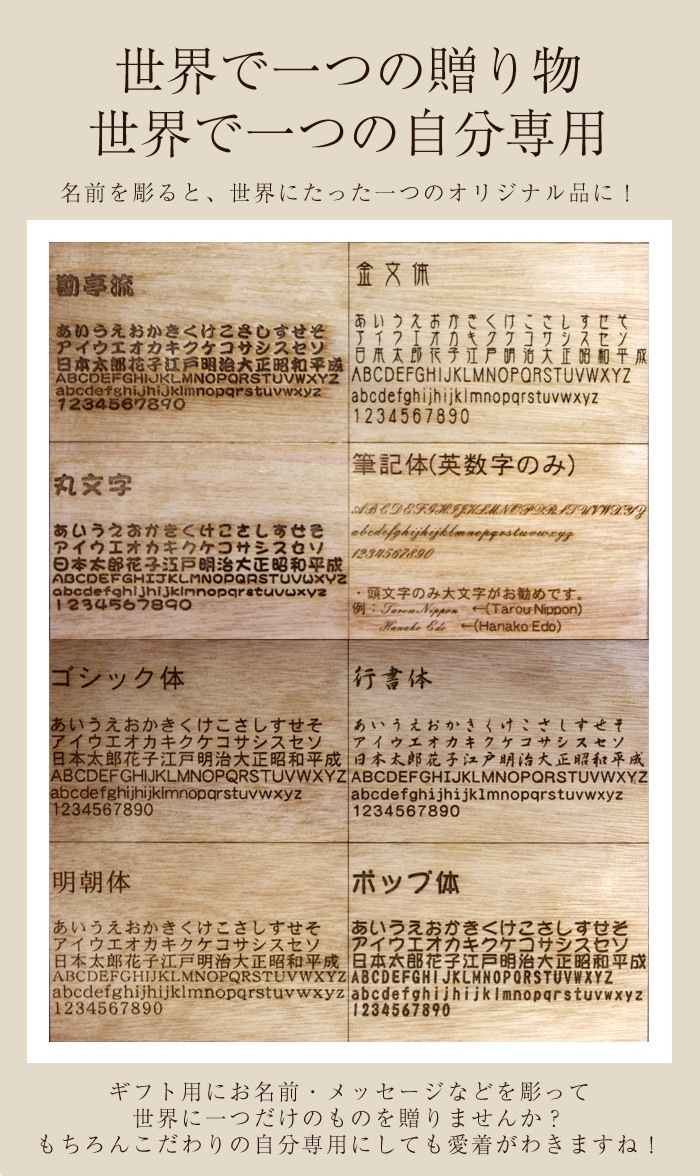 世界で一つの贈り物
世界で一つの自分専用
名前を彫ると、世界にたった一つのオリジナル品に！
勘亭流
あいうえおかきくけこさしすせそ
アイウエオカキクケコサシスセソ
日本太郎花子江戸明治大正昭和平成
ABCDEFGHIJKLMNOPQRSTUVWXYZ
abcdefghijhijklmnopqrstuvwxyz
1234567890
金文体
あいうえおかきくけこさしすせそ
アイウエオカキクケコサシスセソ
日本太郎花子江戸明治大正昭和平成
ABCDEFGHIJKLMNOPQRSTUVWXYZ
abcdefghijhijklmnopqrstuvwxyz
1234567890
丸文字
あいうえおかきくけこさしすせそ
アイウエオカキクケコサシスセソ
日本太郎花子江戸明治大正昭和平成
ABCDEFGHIJKLMNOPQRSTUVWXYZ
abcdefghijhijklmnopqrstuvwxyz
1234567890
筆記体(英数字のみ)
ABCDEFGHIJKLMNOPQRSTUVWXYZ
abcdefghijhijklmnopqrstuvwxyz
1234567890
・頭文字のみ大文字がお勧めです。
例：Tarou Nippon ←(Tarou Nippon)
Hanako Edo ←(Hanako Edo)
ゴシック体
あいうえおかきくけこさしすせそ
アイウエオカキクケコサシスセソ
日本太郎花子江戸明治大正昭和平成
ABCDEFGHIJKLMNOPQRSTUVWXYZ
abcdefghijhijklmnopqrstuvwxyz
1234567890
行書体
あいうえおかきくけこさしすせそ
アイウエオカキクケコサシスセソ
日本太郎花子江戸明治大正昭和平成
ABCDEFGHIJKLMNOPQRSTUVWXYZ
abcdefghijhijklmnopqrstuvwxyz
1234567890
明朝体
あいうえおかきくけこさしすせそ
アイウエオカキクケコサシスセソ
日本太郎花子江戸明治大正昭和平成
ABCDEFGHIJKLMNOPQRSTUVWXYZ
abcdefghijhijklmnopqrstuvwxyz
1234567890
ポップ体
あいうえおかきくけこさしすせそ
アイウエオカキクケコサシスセソ
日本太郎花子江戸明治大正昭和平成
ABCDEFGHIJKLMNOPQRSTUVWXYZ
abcdefghijhijklmnopqrstuvwxyz
1234567890
ギフト用にお名前・メッセージなどを彫って
世界に一つだけのものを贈りませんか？
もちろんこだわりの自分専用にしても愛着がわきますね！